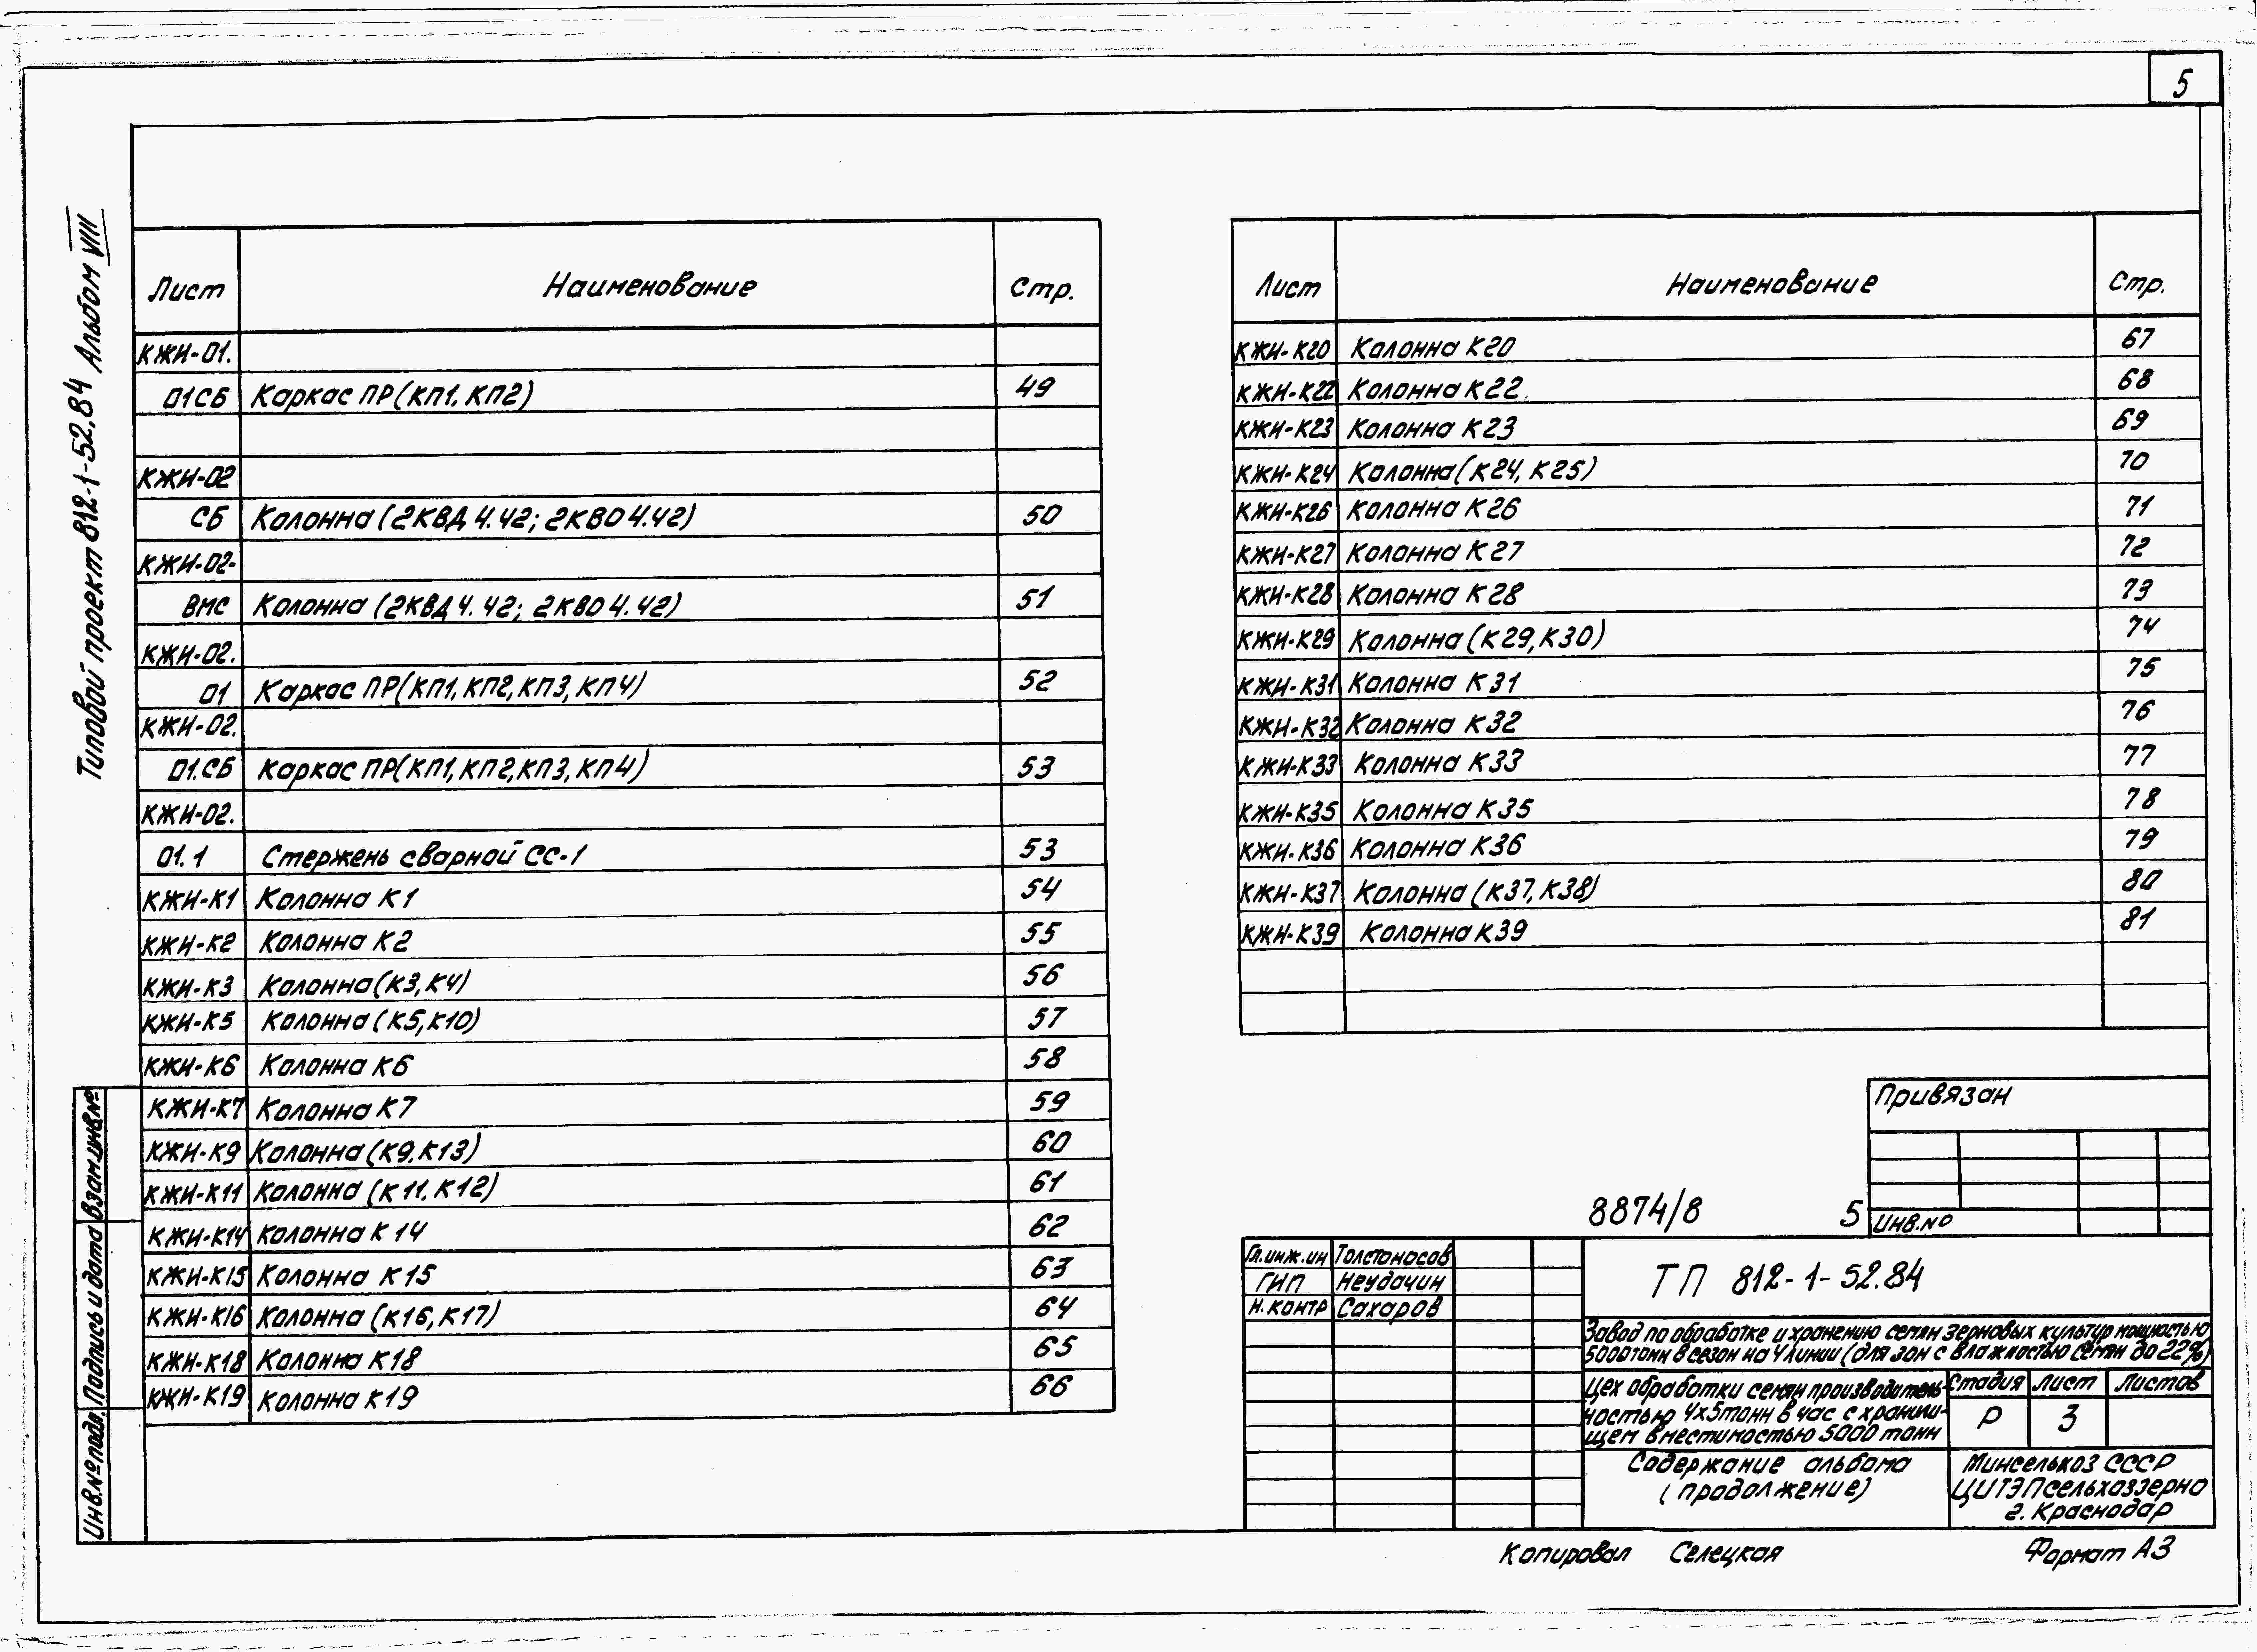 5
Типовой проект 812-1-52.84 Альбом VIII
Лист Наименование Стр.
КЖИ-01.
01СБ Каркас ПР(КП1. КП2) 49
КЖИ-02
СБ Колонна (2КВД 4.42; 2КВО 4.42) 50
КЖИ-02-
ВМС Колонна (2КВД 4.42; 2КВО 4.42) 51
КЖИ-02.
01 Каркас ПР(КП1, КП2, КП3, КП4) 52
КЖИ-02.
01.СБ Каркас ПР(КП1, КП2, КП3, КП4) 53
КЖИ-02.
01.1 Стержень сварной СС-1 53
КЖИ-К1 Колонна К1 54
КЖИ-К2 Колонна К2 55
КЖИ-К3 Колонна (К3, К4) 56
КЖИ-К5 Колонна (К5, К10) 57
КЖИ-К6 Колонна К6 58
КЖИ-К7 Колонна К7 59
КЖИ-К9 Колонна (К9, К13) 60
КЖИ-К11 Колонна (К11. К12) 61
КЖИ-К14 Колонна К14 62
КЖИ-К15 Колонна К15 63
КЖИ-К16 Колонна (К16, К17) 64
КЖИ-К18 Колонна К18 65
КЖИ-К19 Колонна К19 66
Лист Наименование Стр.
КЖИ-К20 Колонна К20 67
КЖИ-К22 Колонна К22. 68
КЖИ-К23 Колонна К23 69
КЖИ-К24 Колонна (К24, К25) 70
КЖИ-К26 Колонна К26 71
КЖИ-К27 Колонна К27 72
КЖИ-К28 Колонна К28 73
КЖИ-К29 Колонна (К29, К30) 74
КЖИ-К31 Колонна К31 75
КЖИ-К32 Колонна К32 76
КЖИ-К33 Колонна К33 77
КЖИ-К35 Колонна К35 78
КЖИ-К36 Колонна К36 79
КЖИ-К37 Колонна (К37, К38) 80
КЖИ-К39 Колонна К39 81
Привязан
Инв.№
8874/8 5
Гл.инж.ин Толстоносов
ГИП Неудачин
Н.контр Сахаров
ТП 812-1-52.84
Завод по обработке и хранению семян зерновых культур мощностью
5000 тонн в сезон на 4 линии (для зон с влажностью семян до 22%)
Цех обработки семян производитель-
ностью 4х5 тонн в час с хранили-
щем вместимостью 5000 тонн
Стадия Лист Листов
Р 3
Содержание альбома
(продолжение)
Минсельхоз СССР
ЦИТЭПсельхоззерно
г. Краснодар
Копировал Селецкая Формат А3
Взам.инв.№
Подпись и дата
Инв.№подл.